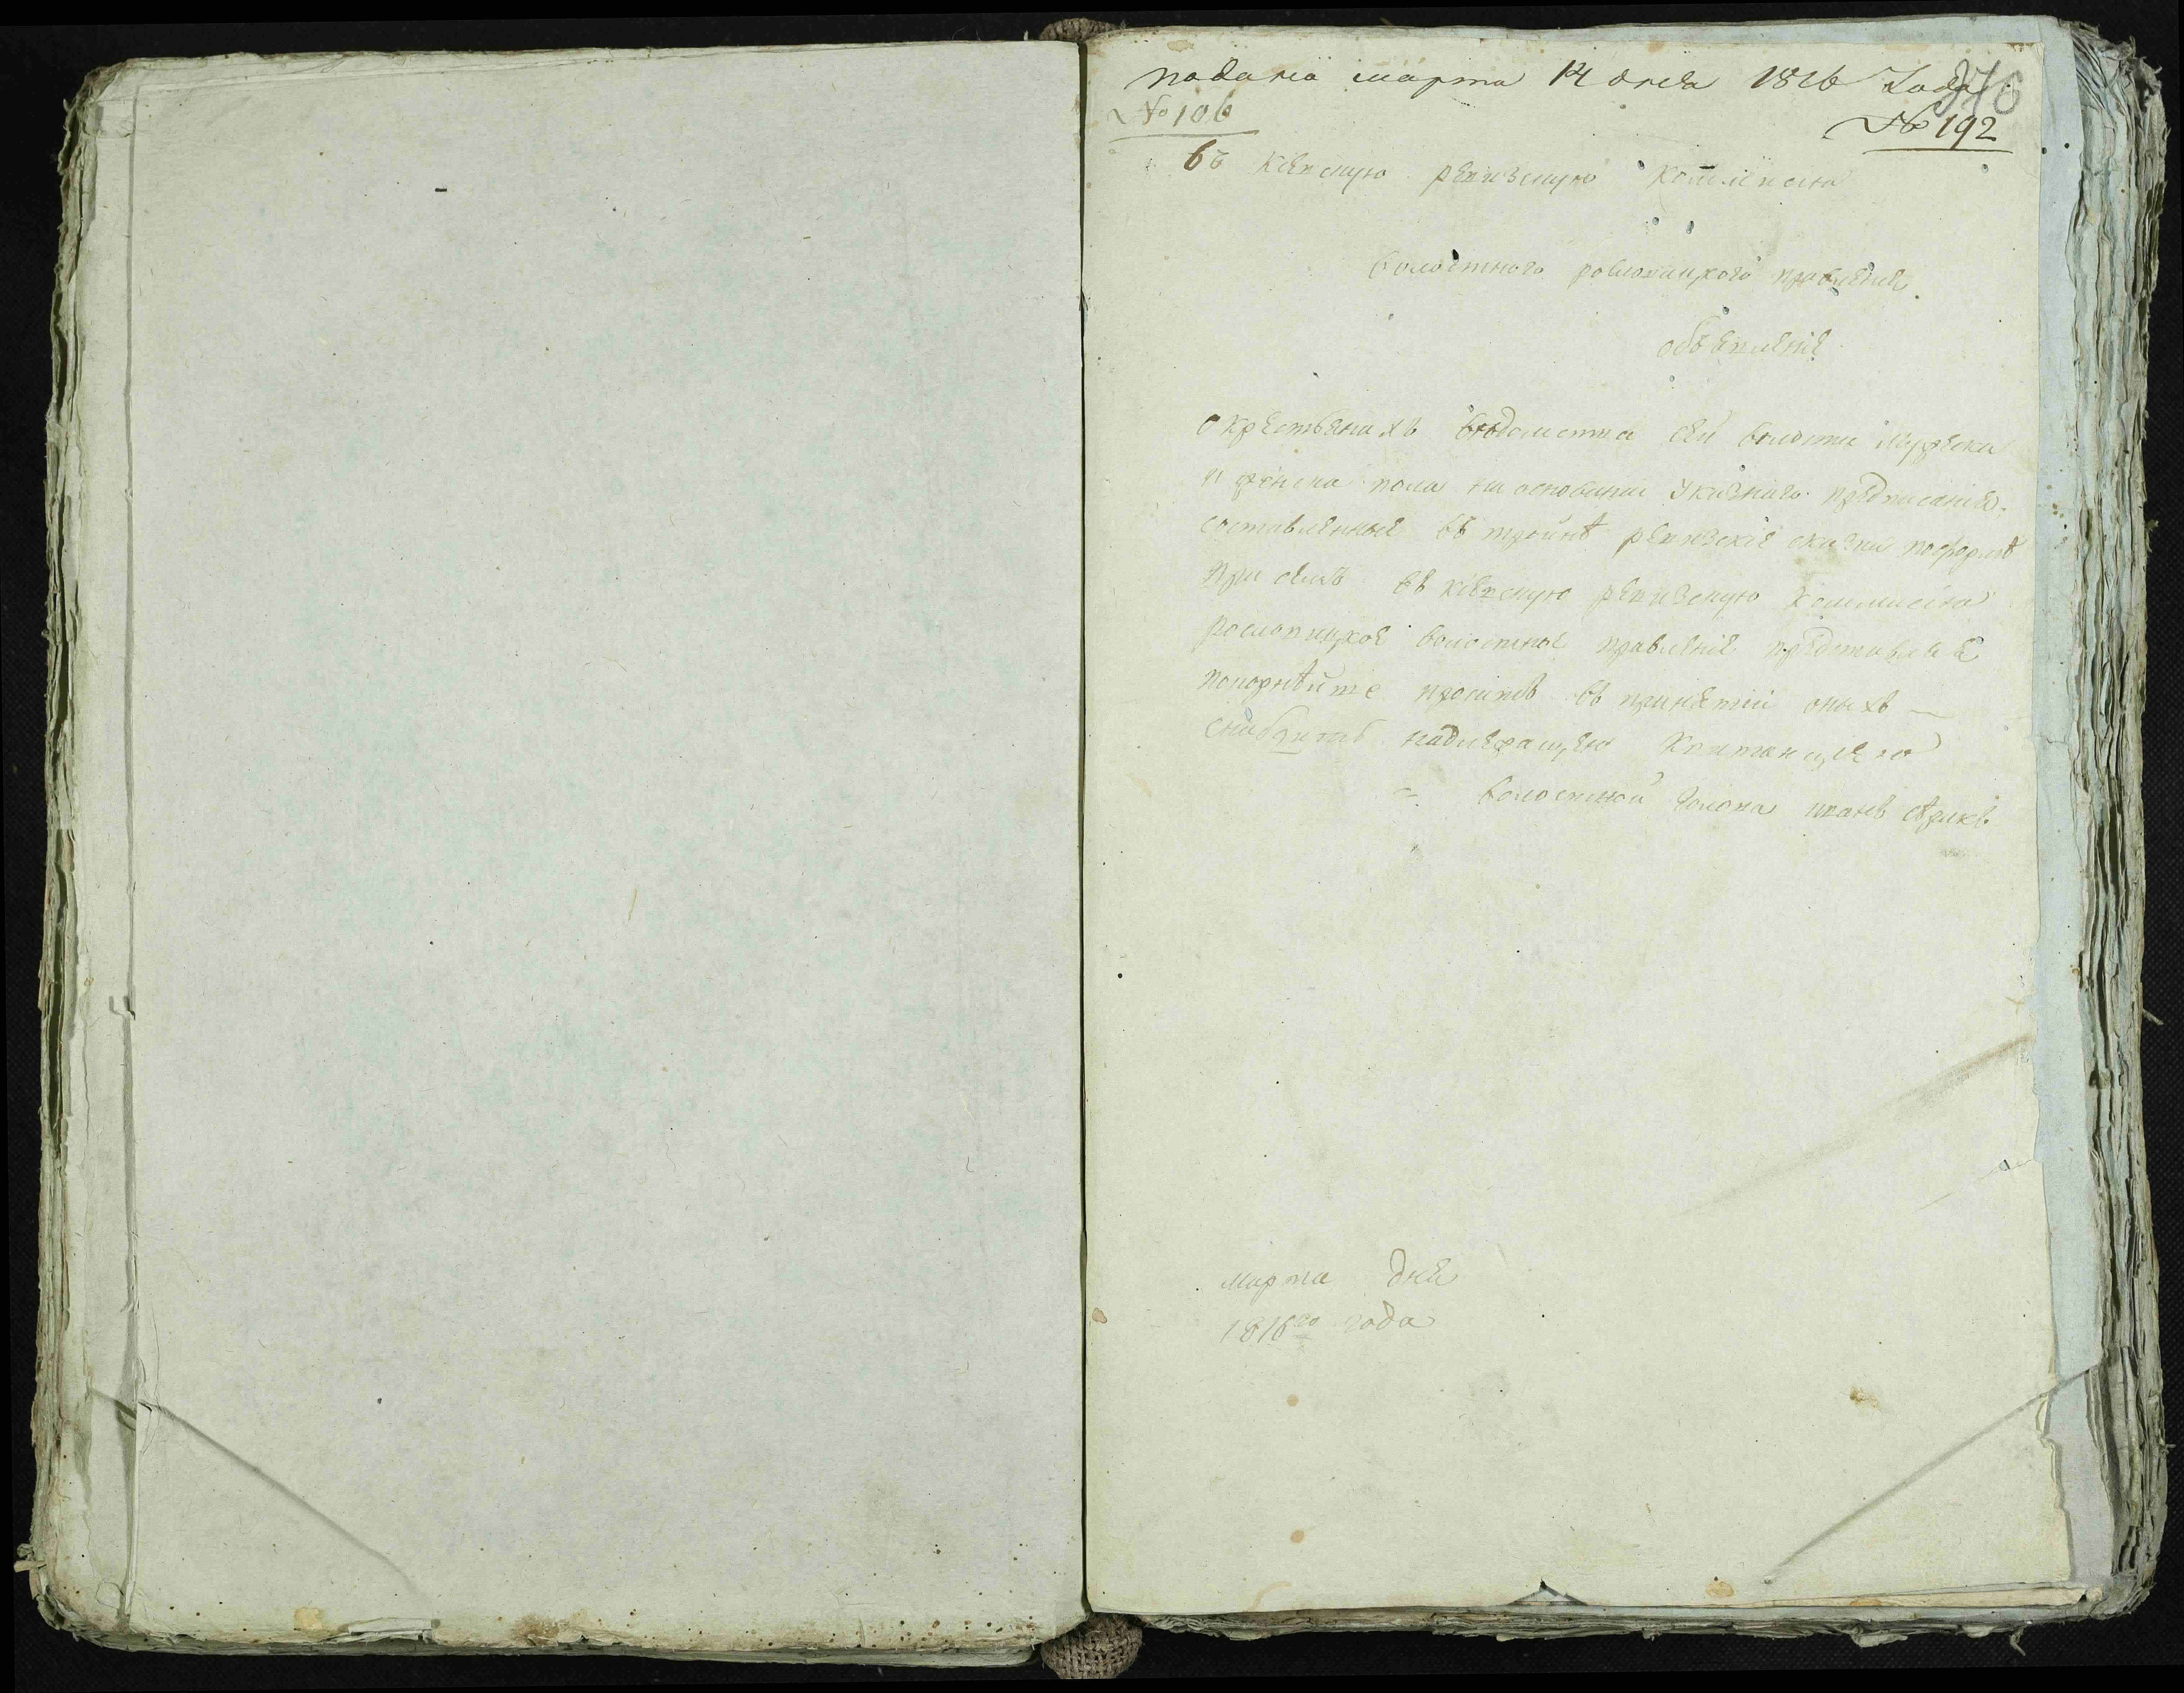 подана марта 14 дня 1816 Года
376
№ 106
№ 192
въ Кіевскую ревизскую Коммисію
волостного рославицкого правленія
объявленіе
о крестьянахъ вѣдомства сей волости мужеска
и женска пола на основаніи указного предписанія
составленные въ тройнѣ ревизскіе сказки по формѣ
при семъ въ кіевскую ревизскую Коммисію
рославицкое волостное правленіе представляя
покорнѣйше проситъ въ принятіи оныхъ
снабдить надлежащею Квитанціею
волостной Голова иванъ
марта дня
1816го года